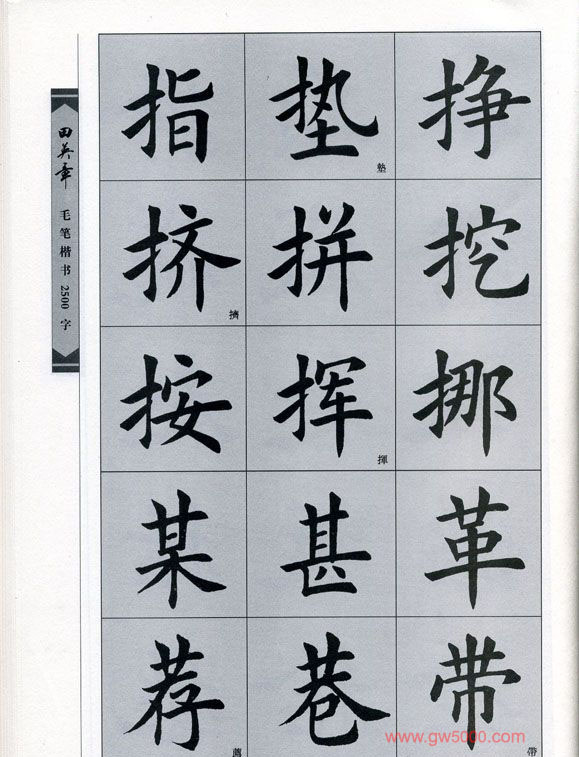 田英章 毛笔楷书 2500 字
指 垫 挣
墊
挤 拼 挖
擠
按 挥 挪
揮
某 甚 革
荐 巷 带
薦 帶
www.gw5000.com